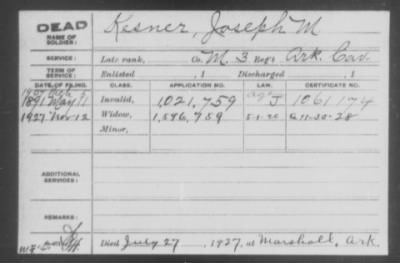 DEAD Kesner, Joseph M
NAME OF SOLDIER:
SERVICE: Late rank, Co. M, 3 Reg't Ark. Cav.
TERM OF SERVICE: Enlisted , 1 Discharged , 1
DATE OF FILING. CLASS. APPLICATION NO. LAW. CERTIFICATE NO.
1907
1891 May 11 Invalid, 1,021,759 J 1061174
1927 Nov 12 Widow, 1,596,759 5-1-20
Minor,
ADDITIONAL SERVICES:
REMARKS:
Died July 27 , 1927, at Marshall, Ark.